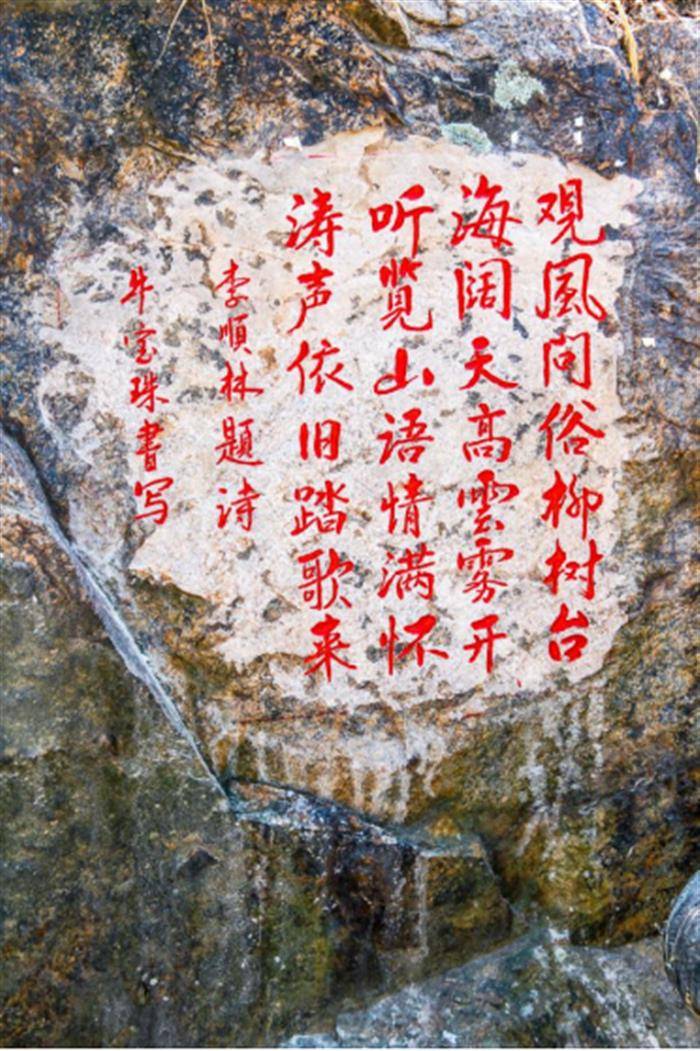 观風问俗柳树台
海阔天高雲雾开
听览山语情满怀
涛声依旧踏歌来
李順林题诗
牛宝珠書写